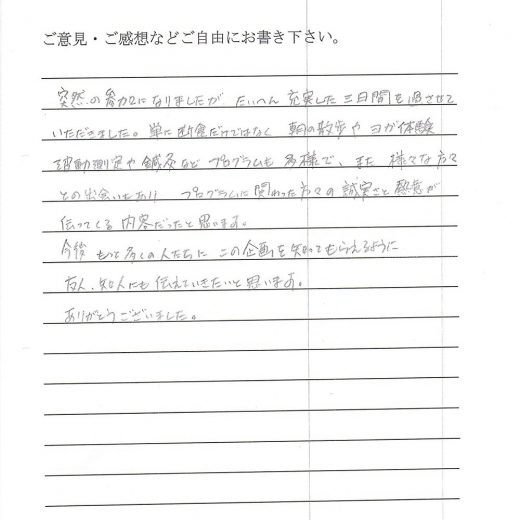 ご意見・ご感想などご自由にお書き下さい。
突然の参加になりましたが たいへん 充実した三日間を過させて
いただきました。単に断食だけではなく 朝の散歩や ヨガ体験
波動測定や鍼灸など プログラムも 多様で、また 様々な方々
との出会いもあり プログラムに関わった方々の 誠実さと 熱意が
伝ってくる 内容だったと思います。
今後 もっと多くの人たちに この企画を知ってもらえるように
友人、知人にも 伝えていきたいと思います。
ありがとうございました。